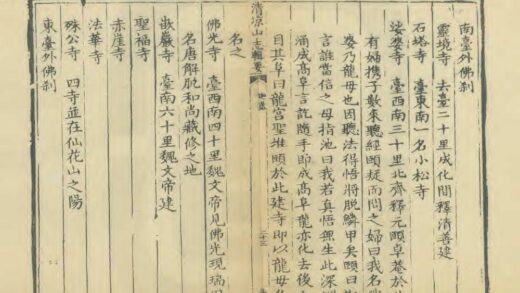 南臺外佛刹
靈境寺 去臺二十里成化間釋清善建
石塔寺 臺東南一名小松寺
娑婆寺 臺西南三十里北齊釋元頤卓菴於
有婦携子數來聽經頤疑而問之婦曰我名
婆乃龍母也因聽法得悟將脫鱗甲矣頤曰
言誰當信之母指池曰我若真悟無生此深
涌成高阜言訖隨手即成高阜龍亦化去後
目其阜曰龍宮聖堆頤於此建寺即以龍母
清涼山志輯要 二十三
名之
佛光寺 臺西南四十里魏文帝見佛光現瑞
名唐解脫和尚藏修之地
嵌巖寺 臺南六十里魏文帝建
聖福寺
赤崖寺
法華寺
殊公寺 四寺並在仙花山之陽
東臺外佛刹